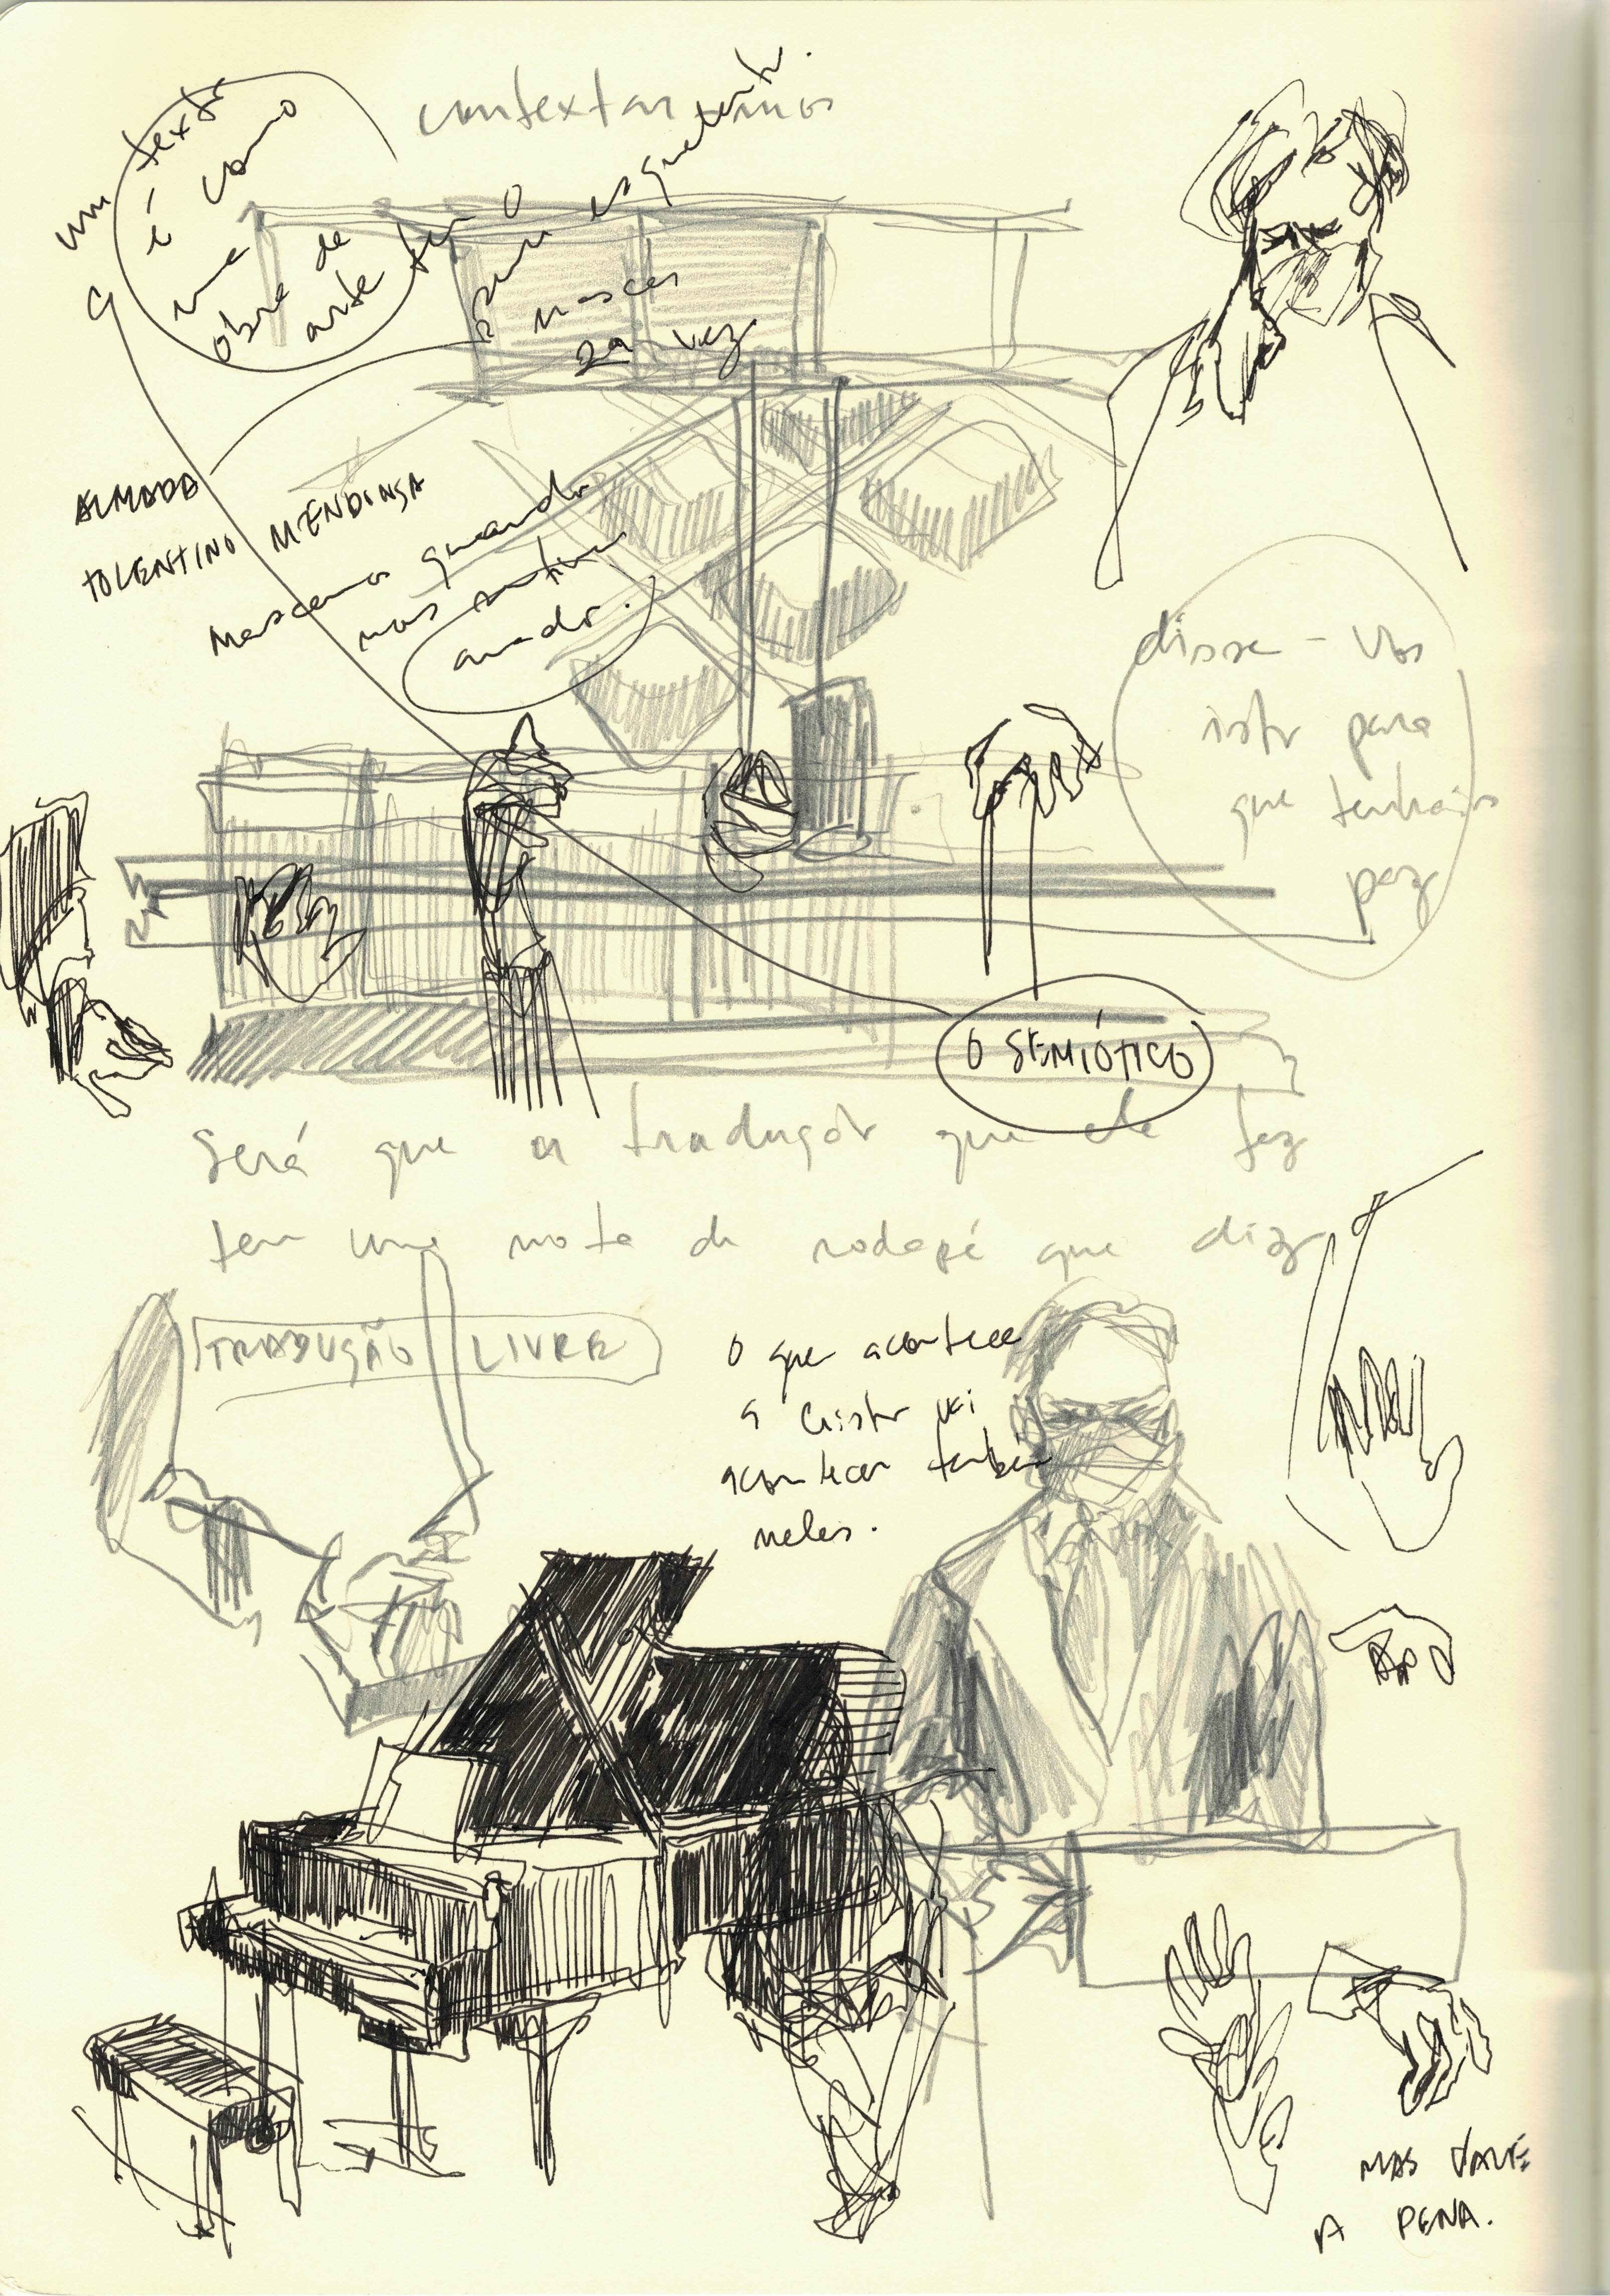 um texto
é como
uma
obra de
arte tem o
para
nascer
2a vez
ALMADA
TOLENTINO MENDONÇA
nascemos quando
nos
amado.
disse-vos
isto para
que tenhais
paz
O SEMIÓTICO
Será que a tradução que ele fez
tem uma nota de rodapé que diz
TRADUÇÃO LIVRE
O que acontece
a Cristo vai
acontecer também
neles.
MAS VALE
A PENA.